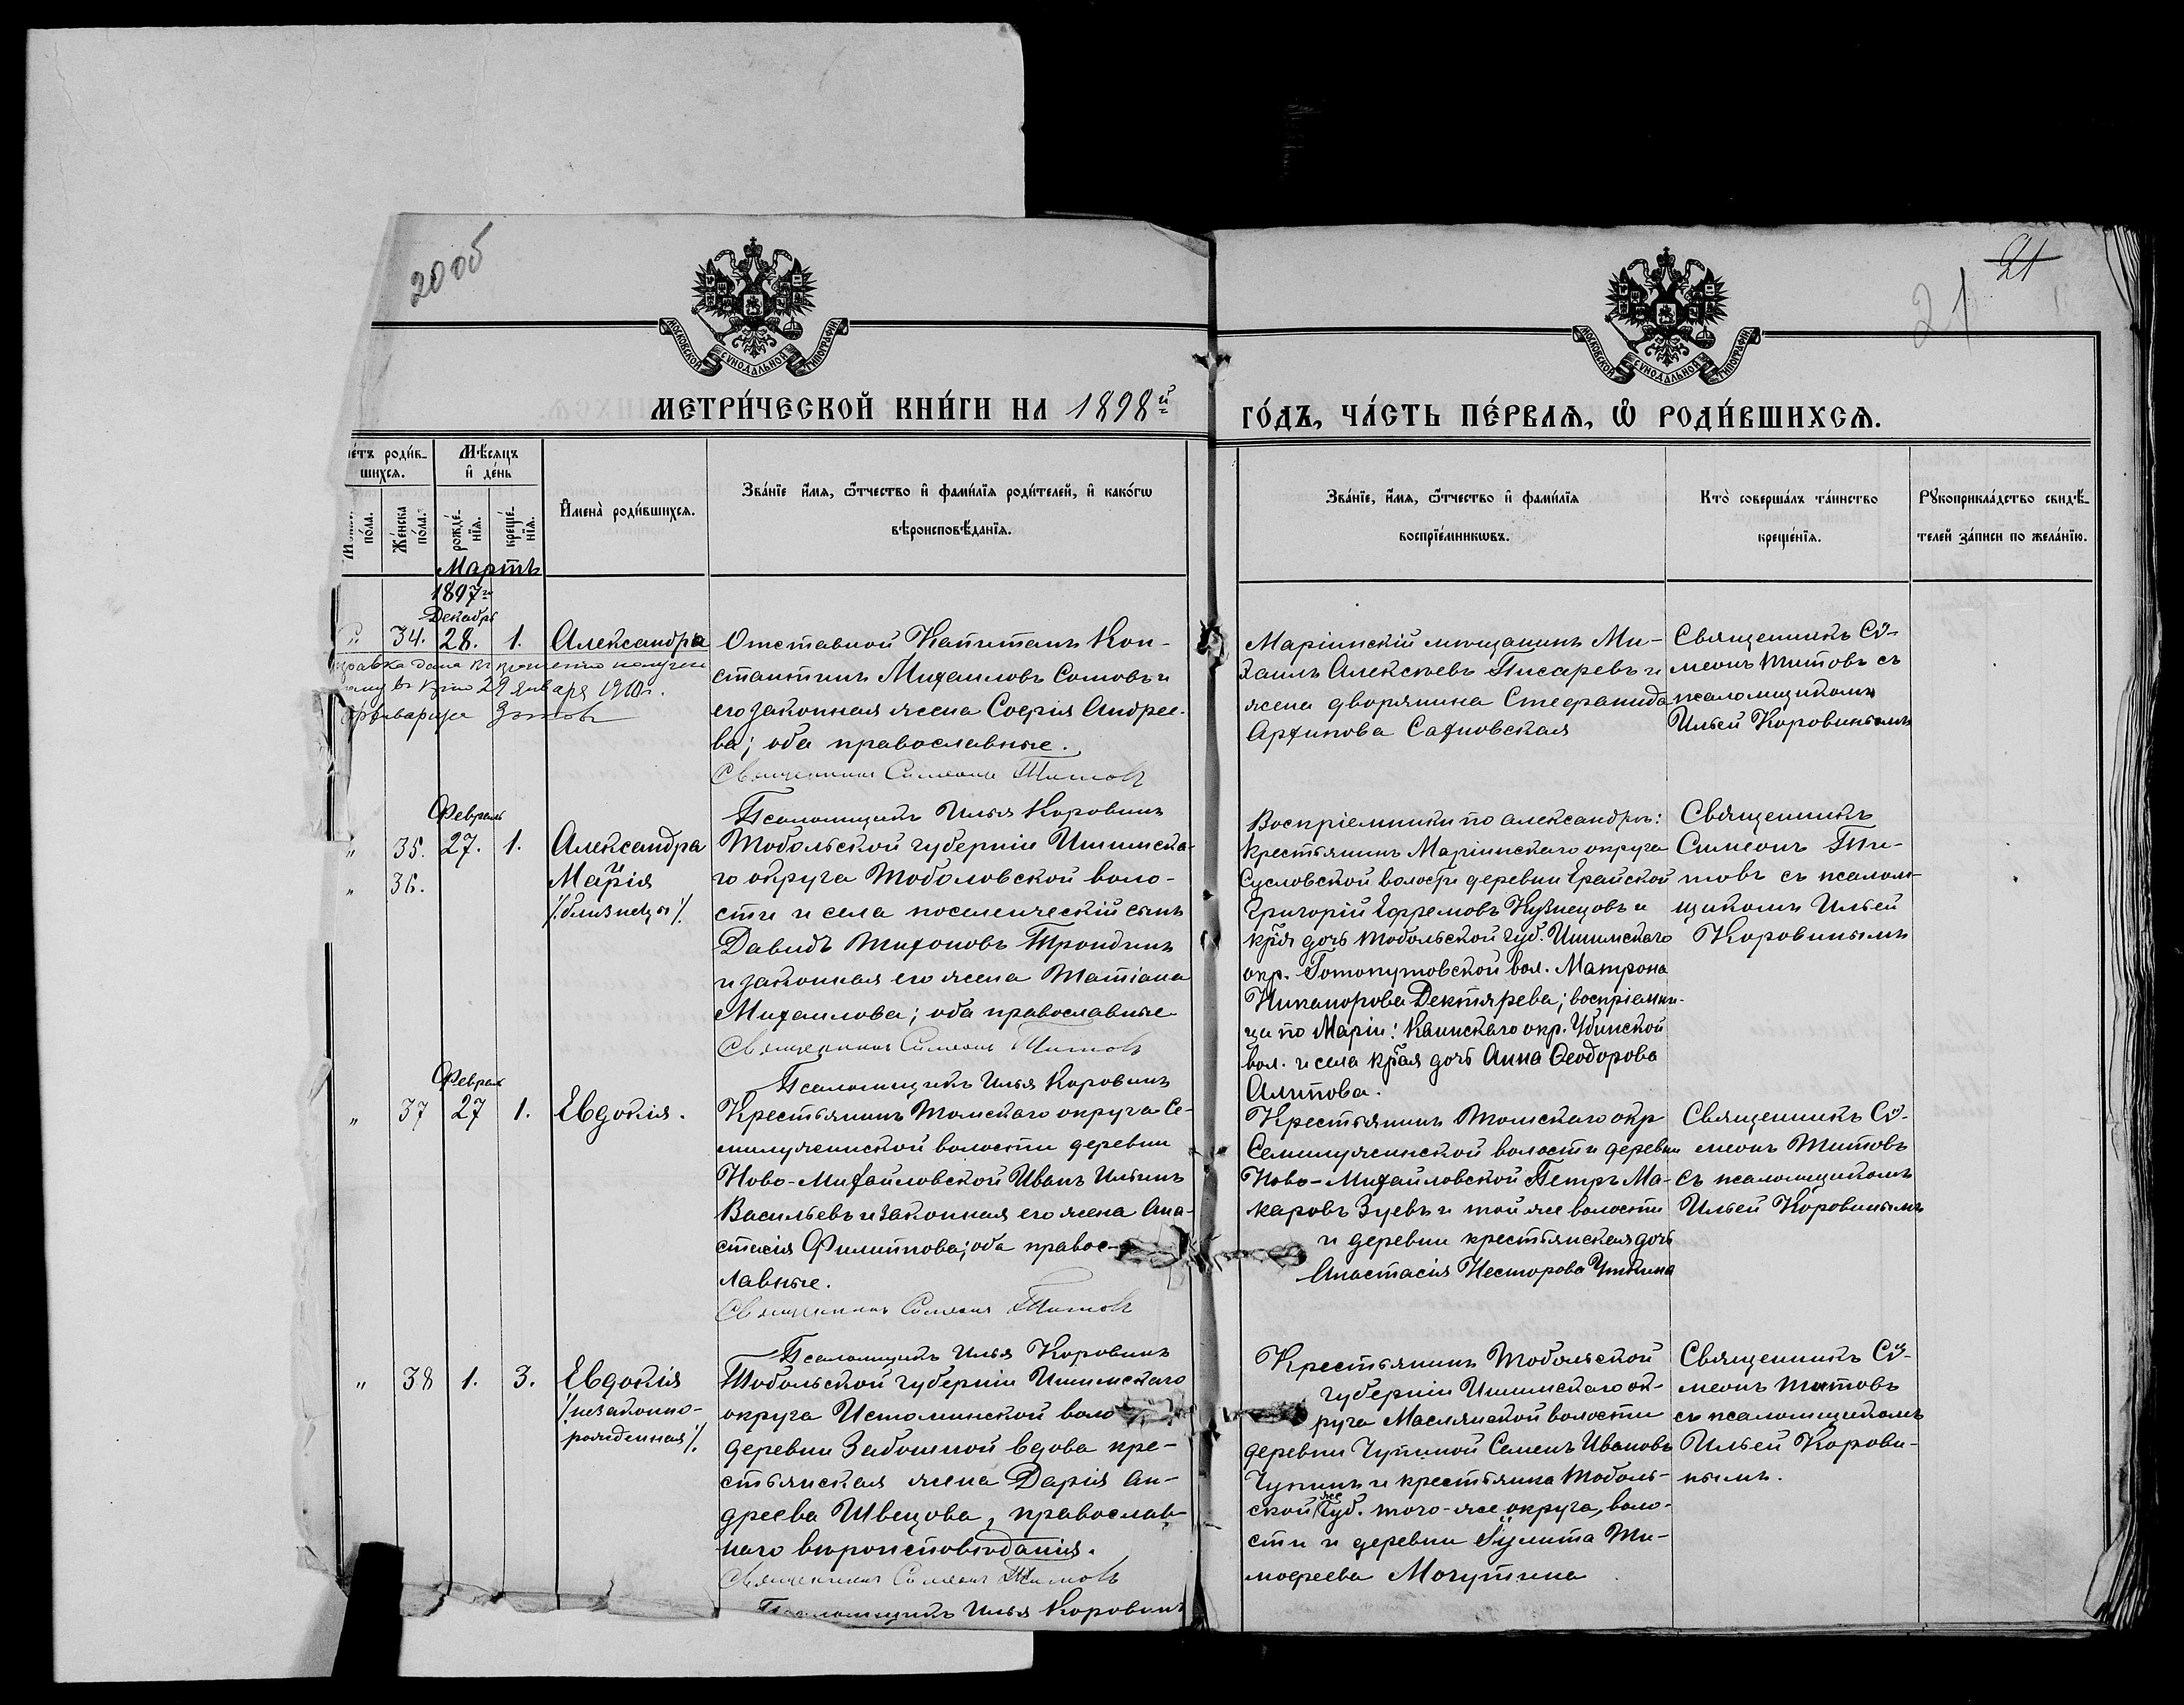 20 об
21
21
МОСКОВСКОЙ СУНОДАЛЬНОЙ ТИПОГРАФІИ
МОСКОВСКОЙ СУНОДАЛЬНОЙ ТИПОГРАФІИ
МЕТРИ́ЧЕСКОЙ КНИ́ГИ НА 1898й
ГО́ДЪ, ЧА́СТЬ ПЕ́РВАЯ, Ѡ҆ РОДИ́ВШИХСѦ.
роди́в-
шихсѧ.
Мѣ́сѧцъ
и҆ де́нь
по́ла.
Же́нска
по́ла.
рожде́-
нїѧ.
креще́-
нїѧ.
И҆мена̀ роди́вшихсѧ.
Зва́нїе и҆́мѧ, ѻ҆́тчество и҆ фами́лїѧ роди́телей, и҆ како́гѡ
вѣроисповѣ́данїѧ.
Зва́нїе, и҆́мѧ, ѻ҆́тчество и҆ фами́лїѧ
воспрїе́мникѡвъ.
Кто̀ соверша́лъ та́инство
креще́нїѧ.
Рꙋкоприкла́дство свидѣ́-
телей за́писи по жела́нїю.
Мартъ
1897 г.
Декабрь
34. 28. 1. Александра
Отставной Капитанъ Кон-
стантинъ Михаиловъ Сомовъ и
его законная жена Софія Андрее-
ва; оба православные.
Священникъ Симеонъ Титовъ
Псаломщикъ Илья Коровинъ
Маріинскій мѣщанинъ Ми-
хаилъ Алексѣевъ Писаревъ и
жена дворянина Стефанида
Архипова
Священникъ Си-
меонъ Титовъ съ
псаломщикомъ
Ильей Коровинымъ
дана
29 января 1910 г.
Февраль
" 35. 27. 1. Александра
и
" 36. Марія
/близнецы/
Тобольской губерніи Ишимска-
го округа Тоболовской воло-
сти и села поселенческій сынъ
Давидъ Тихоновъ Трондинъ
и законная его жена Татіана
Михаилова; оба православные
Священникъ Симеонъ Титовъ
Псаломщикъ Илья Коровинъ
Воспріемники по александрѣ:
крестьянинъ Маріинскаго округа
Сусловской волости деревни
Григорій Ефремовъ Кузнецовъ и
кр-ая дочь Тобольской губ. Ишимскаго
окр. Готопутовской вол. Матрона
Никанорова Дектярева; воспріемни-
ца по Маріи: Каинскаго окр. Убинской
вол. и села кр-ая дочь Анна Ѳеодорова
Алипова.
Священникъ
Симеонъ Ти-
товъ съ псалом-
щикомъ Ильей
Коровинымъ
Февраль
" 37 27 1. Евдокія.
Крестьянинъ Томскаго округа Се-
милуженской волости деревни
Ново-Михайловской Иванъ Ильинъ
Васильевъ и законная его жена Ана-
стасія Филиппова; оба правос-
лавные.
Священникъ Симеонъ Титовъ
Псаломщикъ Илья Коровинъ
Крестьянинъ Томскаго окр
Семилуженской волости деревни
Ново-Михайловской Петръ Ма-
каровъ Зуевъ и той же волости
и деревни крестьянская дочь
Анастасія Несторова Уткина
Священникъ Си-
меонъ Титовъ
съ псаломщикомъ
Ильей Коровинымъ
" 38 1. 3. Евдокія
/незаконно-
рожденная/.
Тобольской губерніи Ишимскаго
округа Истошинской воло
деревни вдова кре-
стьянская жена Дарія Ан-
дреева Швецова, православ-
наго вѣроисповѣданія.
Священникъ Симеонъ Титовъ
Псаломщикъ Илья Коровинъ
Крестьянинъ Тобольской
губерніи Ишимскаго ок-
руга Маслянской волости
деревни Чупиной Семенъ Ивановъ
Чупинъ и крестьянка Тоболь-
ской же губ. того-же округа, воло-
сти и деревни Ти-
моѳеева Могутина
Священникъ Си-
меонъ Титовъ
съ псаломщикомъ
Ильей Корови-
нымъ.